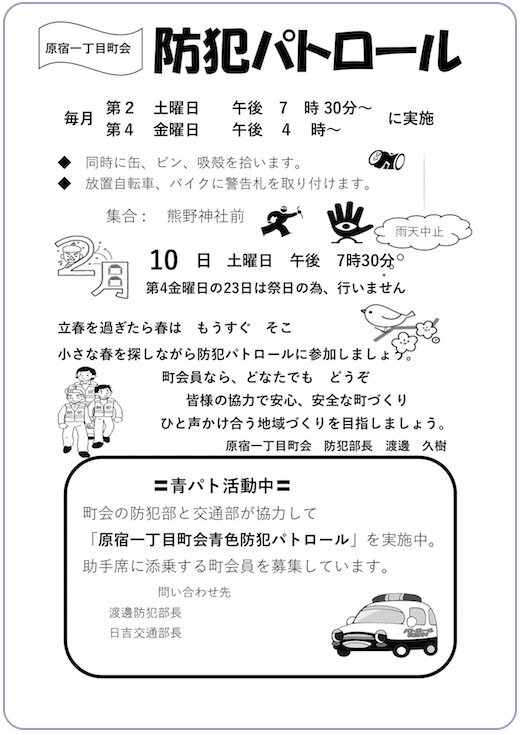 原宿一丁目町会
防犯パトロール
毎月 第2 土曜日 午後 7 時 30分～ に実施
第4 金曜日 午後 4 時～
◆ 同時に缶、ビン、吸殻を拾います。
◆ 放置自転車、バイクに警告札を取り付けます。
集合： 熊野神社前
雨天中止
2月 10 日 土曜日 午後 7時30分。
第4金曜日の23日は祭日の為、行いません
立春を過ぎたら春は もうすぐ そこ
小さな春を探しながら防犯パトロールに参加しましょう。
町会員なら、どなたでも どうぞ
皆様の協力で安心、安全な町づくり
ひと声かけ合う地域づくりを目指しましょう。
原宿一丁目町会 防犯部長 渡邊 久樹
＝青パト活動中＝
町会の防犯部と交通部が協力して
「原宿一丁目町会青色防犯パトロール」を実施中。
助手席に添乗する町会員を募集しています。
問い合わせ先
渡邊防犯部長
日吉交通部長
パトロール